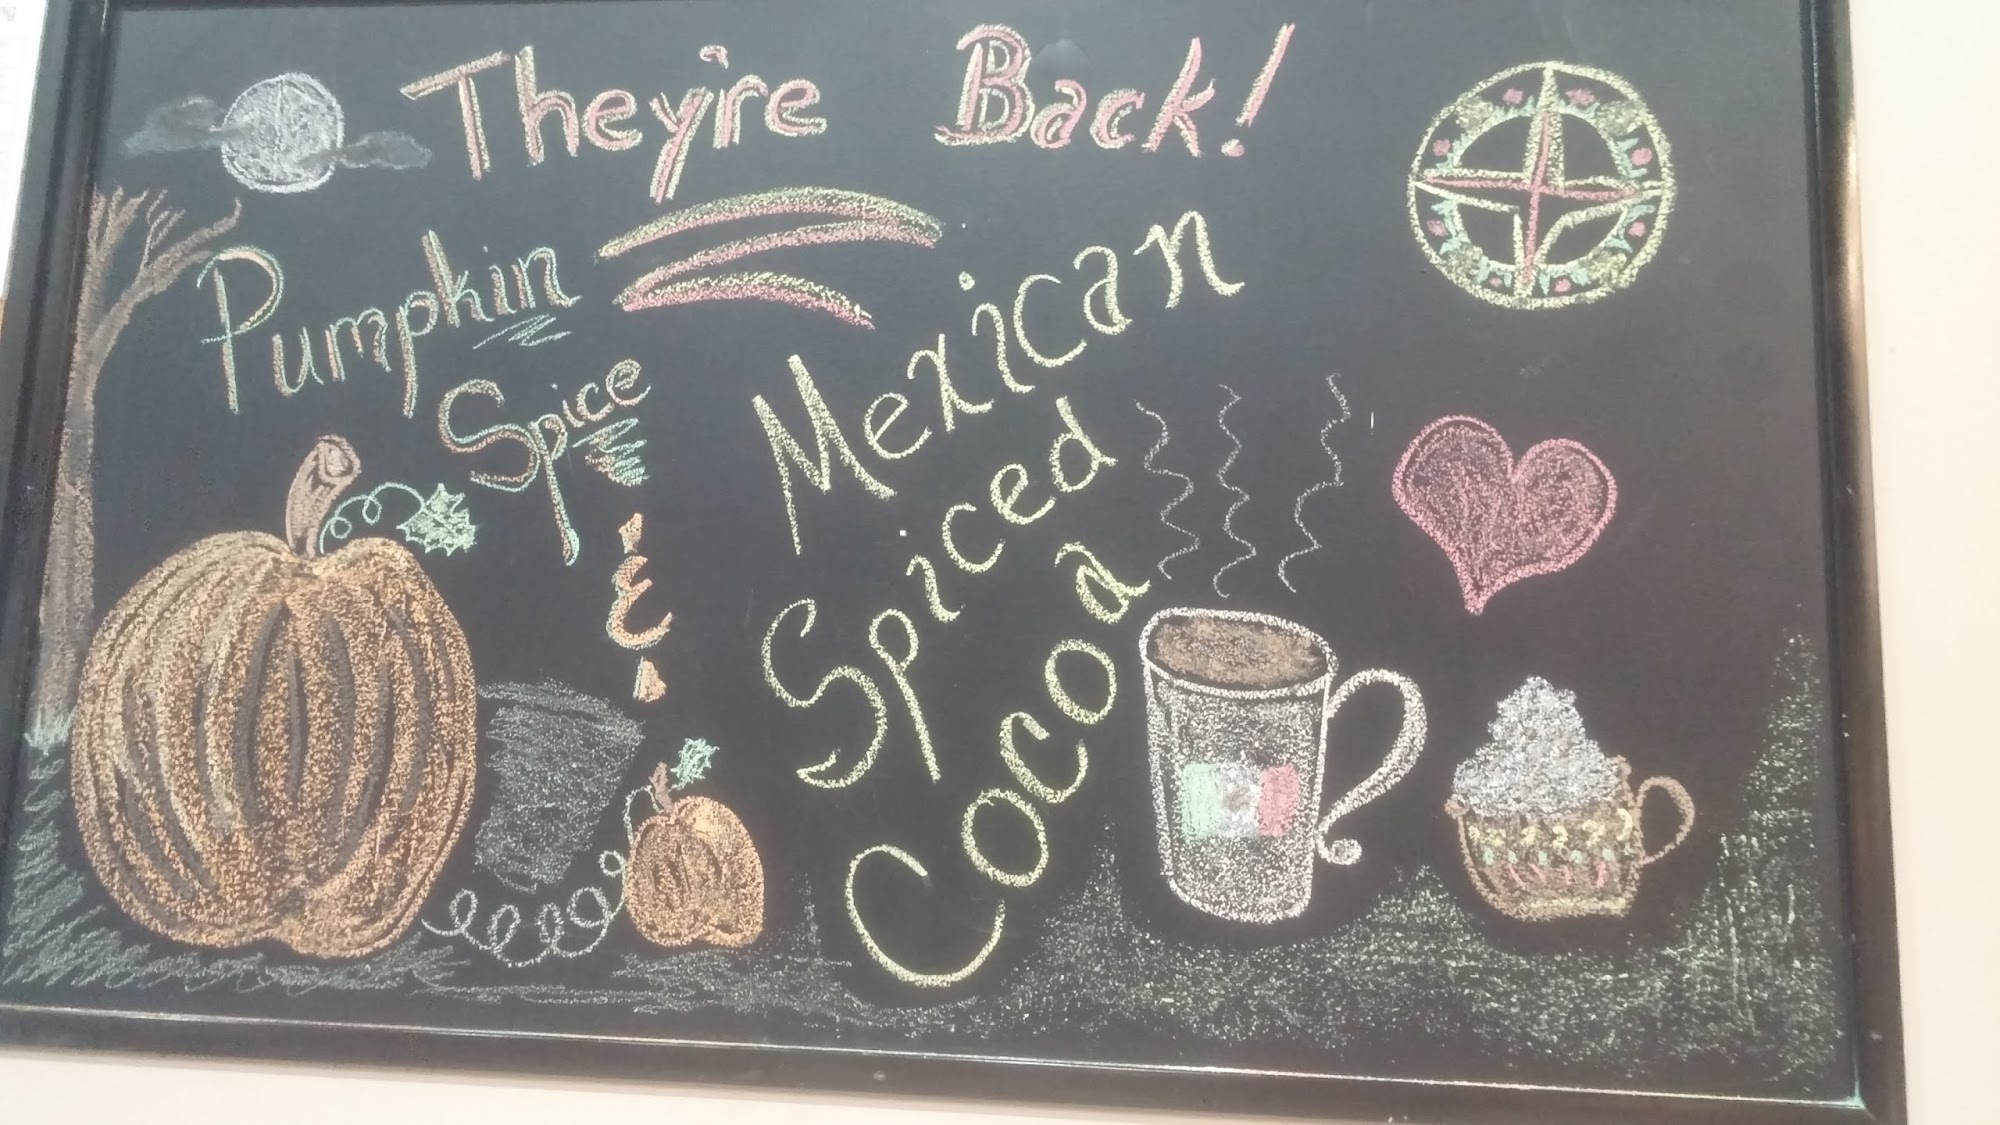 They're Back!
Pumpkin
Spice
&
Mexican
Spiced
Cocoa